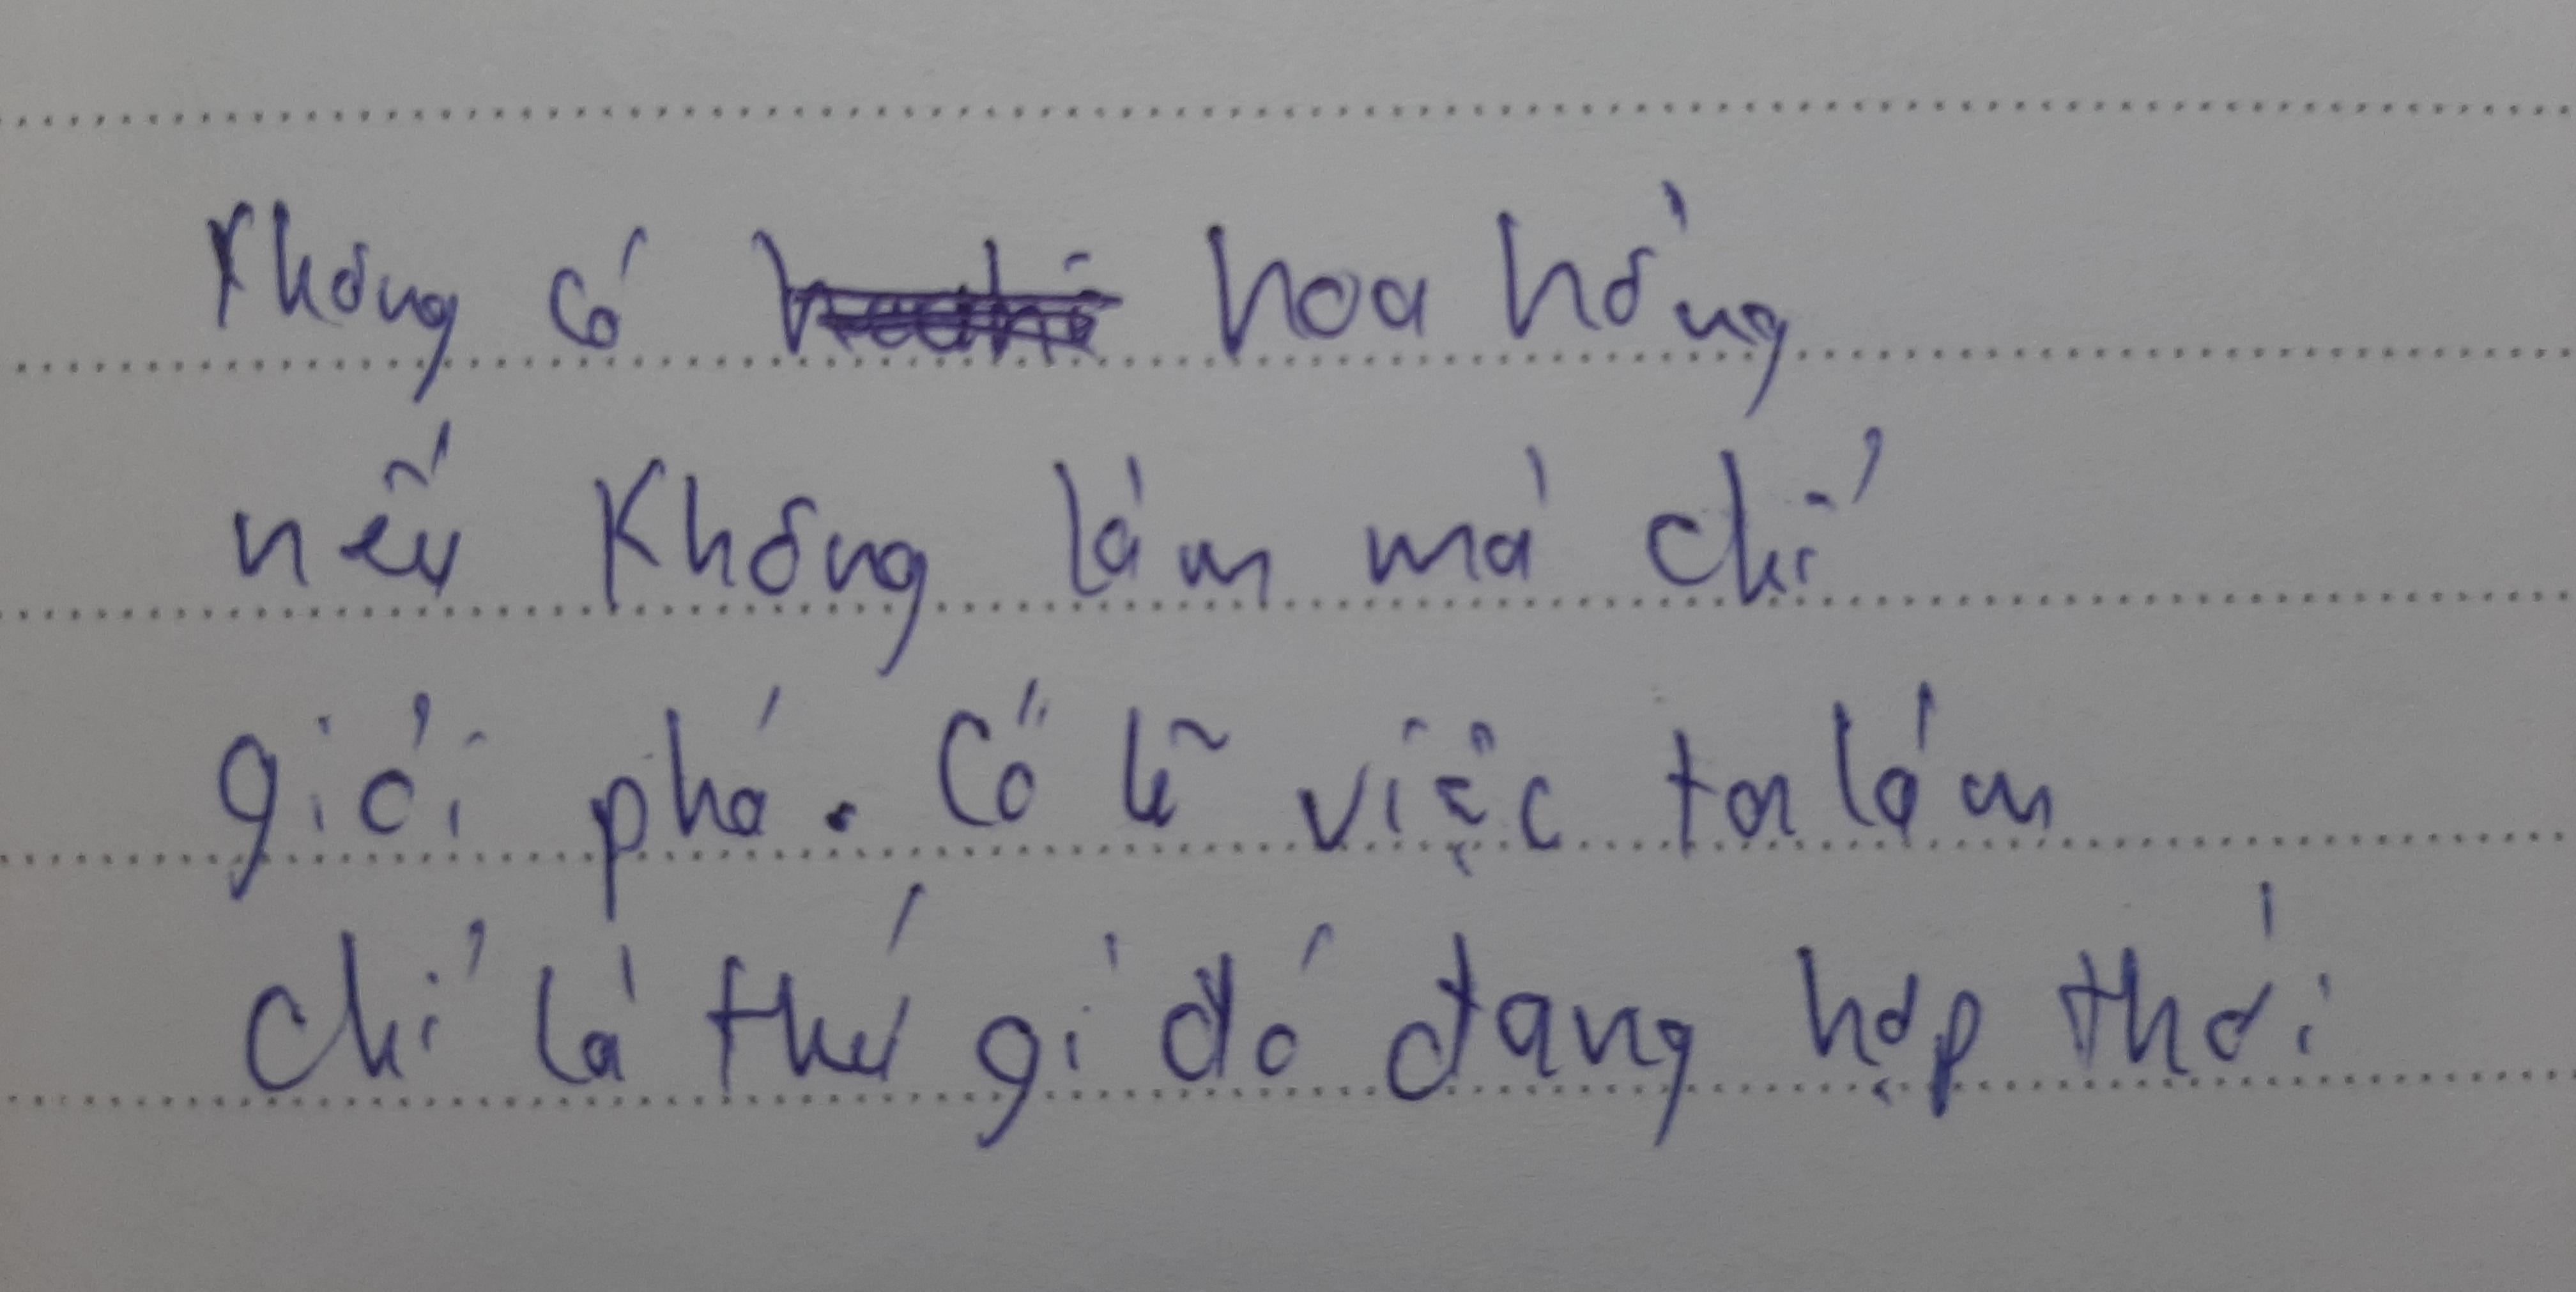 Không có hoa hồng
nếu Không làm mà chỉ
giỏi phá. Có lẽ việc ta làm
chỉ là thứ gì đó đang hợp thời